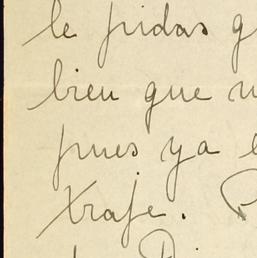 le pidas
bien que
pues ya
traje.